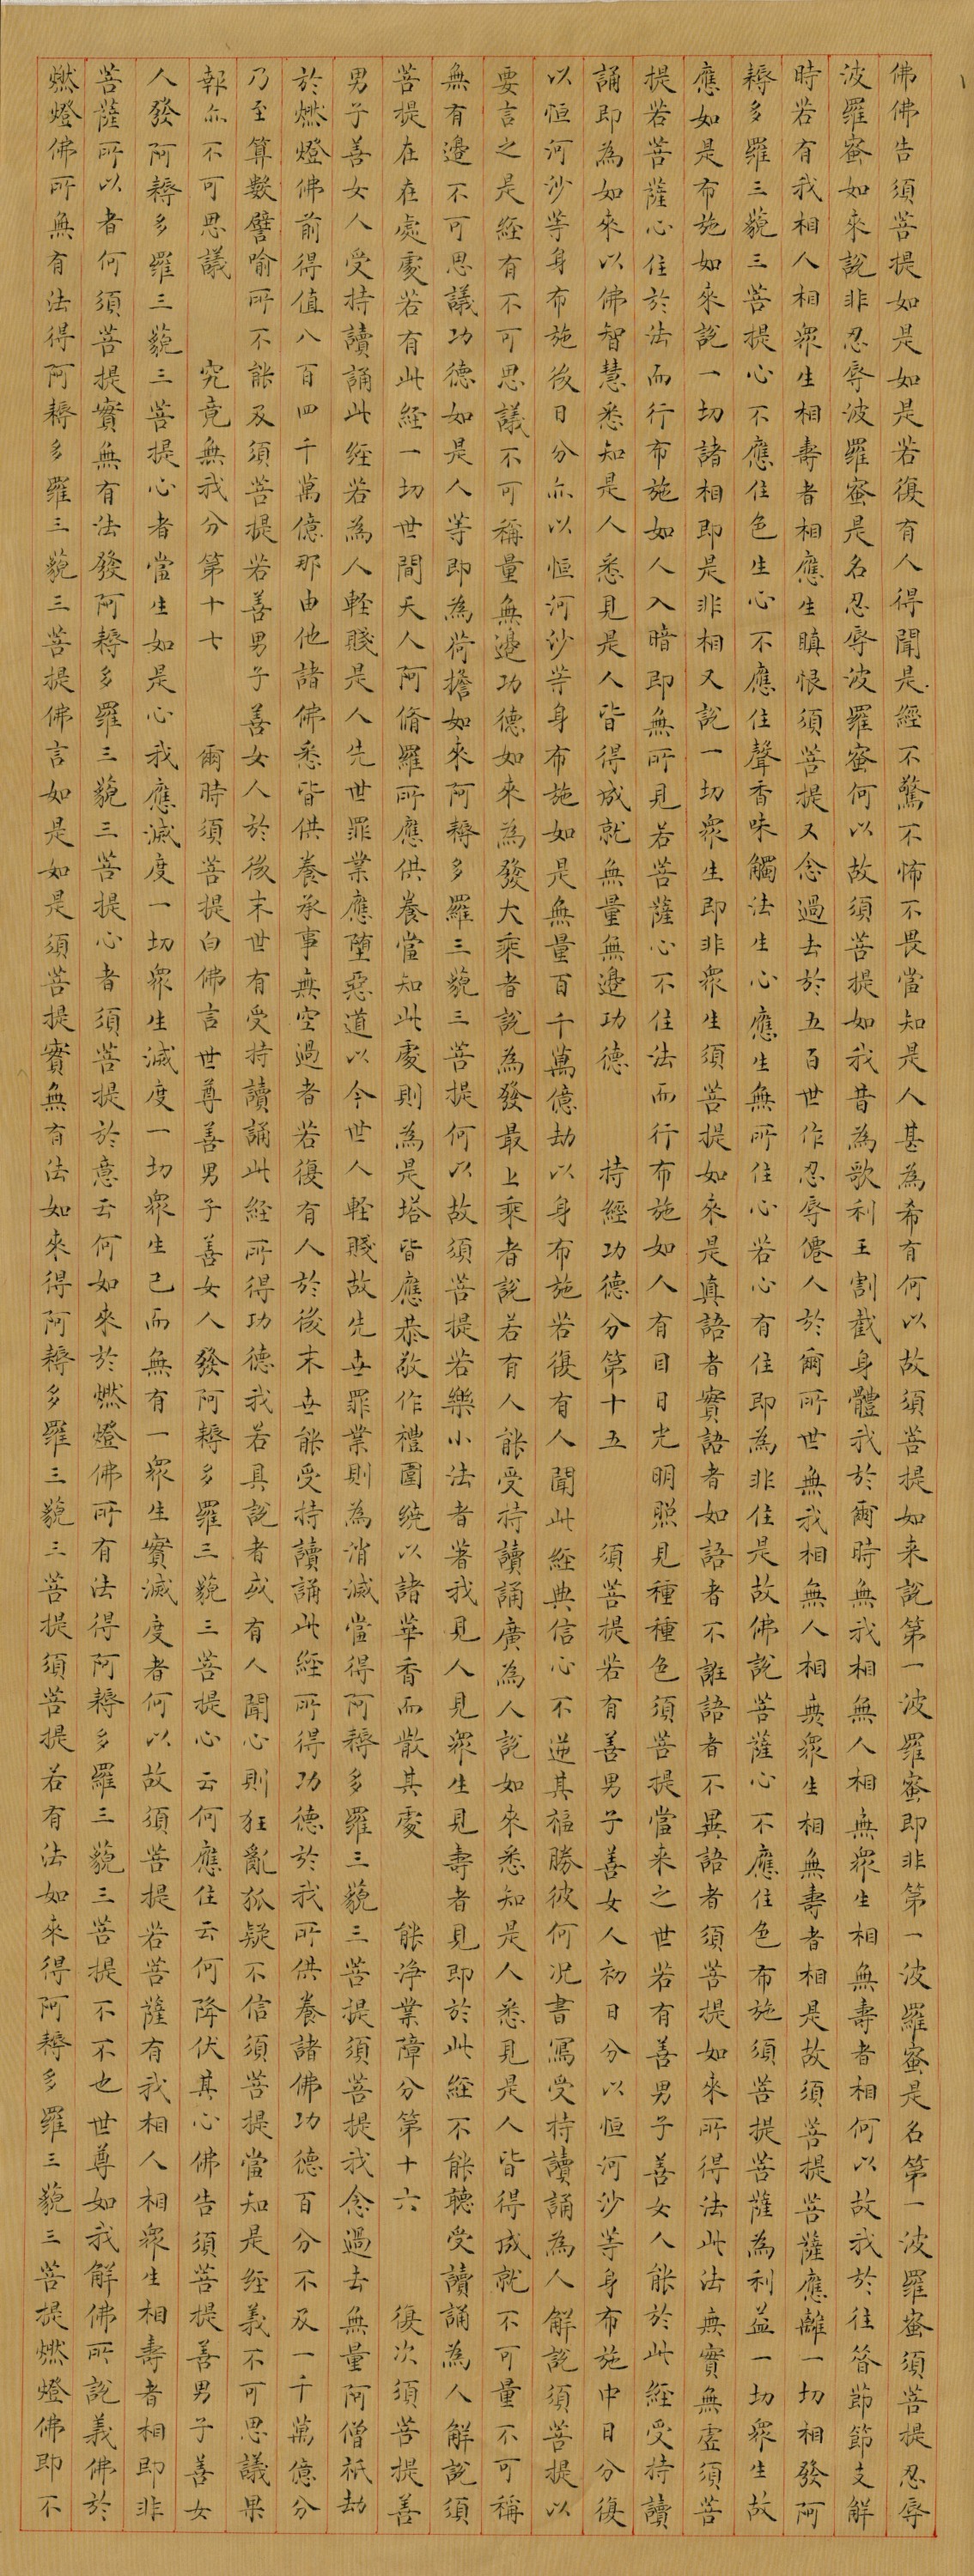 佛佛告須菩提如是如是若復有人得聞是經不驚不怖不畏當知是人甚為希有何以故須菩提如来說第一波羅蜜即非第一波羅蜜是名第一波羅蜜須菩提忍辱
波羅蜜如來說非忍辱波羅蜜是名忍辱波羅蜜何以故須菩提如我昔為歌利王割截身體我於爾時無我相無人相無眾生相無壽者相何以故我於往昔節節支解
時若有我相人相眾生相壽者相應生瞋恨須菩提又念過去於五百世作忍辱僊人於爾所世無我相無人相無眾生相無壽者相是故須菩提菩薩應離一切相發阿
耨多羅三藐三菩提心不應住色生心不應住聲香味觸法生心應生無所住心若心有住即為非住是故佛說菩薩心不應住色布施須菩提菩薩為利益一切眾生故
應如是布施如來說一切諸相即是非相又說一切眾生即非眾生須菩提如來是真語者實語者如語者不誑語者不異語者須菩提如來所得法此法無實無虛須菩
提若菩薩心住於法而行布施如人入暗即無所見若菩薩心不住法而行布施如人有目日光明照見種種色須菩提當来之世若有善男子善女人能於此經受持讀
誦即為如來以佛智慧悉知是人悉見是人皆得成就無量無邊功德　持經功德分第十五　須菩提若有善男子善女人初日分以恒河沙等身布施中日分復
以恒河沙等身布施後日分亦以恒河沙等身布施如是無量百千萬億劫以身布施若復有人聞此經典信心不逆其福勝彼何況書寫受持讀誦為人解說須菩提以
要言之是經有不可思議不可稱量無邊功德如來為發大乘者說為發最上乘者說若有人能受持讀誦廣為人說如來悉知是人悉見是人皆得成就不可量不可稱
無有邊不可思議功德如是人等即為荷擔如來阿耨多羅三藐三菩提何以故須菩提若樂小法者著我見人見眾生見壽者見即於此經不能聽受讀誦為人解說須
菩提在在處處若有此經一切世間天人阿脩羅所應供養當知此處則為是塔皆應恭敬作禮圍繞以諸華香而散其處　能淨業障分第十六　復次須菩提善
男子善女人受持讀誦此經若為人輕賤是人先世罪業應墮惡道以今世人輕賤故先世罪業則為消滅當得阿耨多羅三藐三菩提須菩提我念過去無量阿僧祇劫
於燃燈佛前得值八百四千萬億那由他諸佛悉皆供養承事無空過者若復有人於後末世能受持讀誦此經所得功德於我所供養諸佛功德百分不及一千萬億分
乃至算數譬喻所不能及須菩提若善男子善女人於後末世有受持讀誦此經所得功德我若具說者或有人聞心則狂亂狐疑不信須菩提當知是經義不可思議果
報亦不可思議　究竟無我分第十七　爾時須菩提白佛言世尊善男子善女人發阿耨多羅三藐三菩提心云何應住云何降伏其心佛告須菩提善男子善女
人發阿耨多羅三藐三菩提心者當生如是心我應滅度一切眾生滅度一切眾生已而無有一眾生實滅度者何以故須菩提若菩薩有我相人相眾生相壽者相即非
菩薩所以者何須菩提實無有法發阿耨多羅三藐三菩提心者須菩提於意云何如來於燃燈佛所有法得阿耨多羅三藐三菩提不不也世尊如我解佛所說義佛於
燃燈佛所無有法得阿耨多羅三藐三菩提佛言如是如是須菩提實無有法如來得阿耨多羅三藐三菩提須菩提若有法如來得阿耨多羅三藐三菩提燃燈佛即不